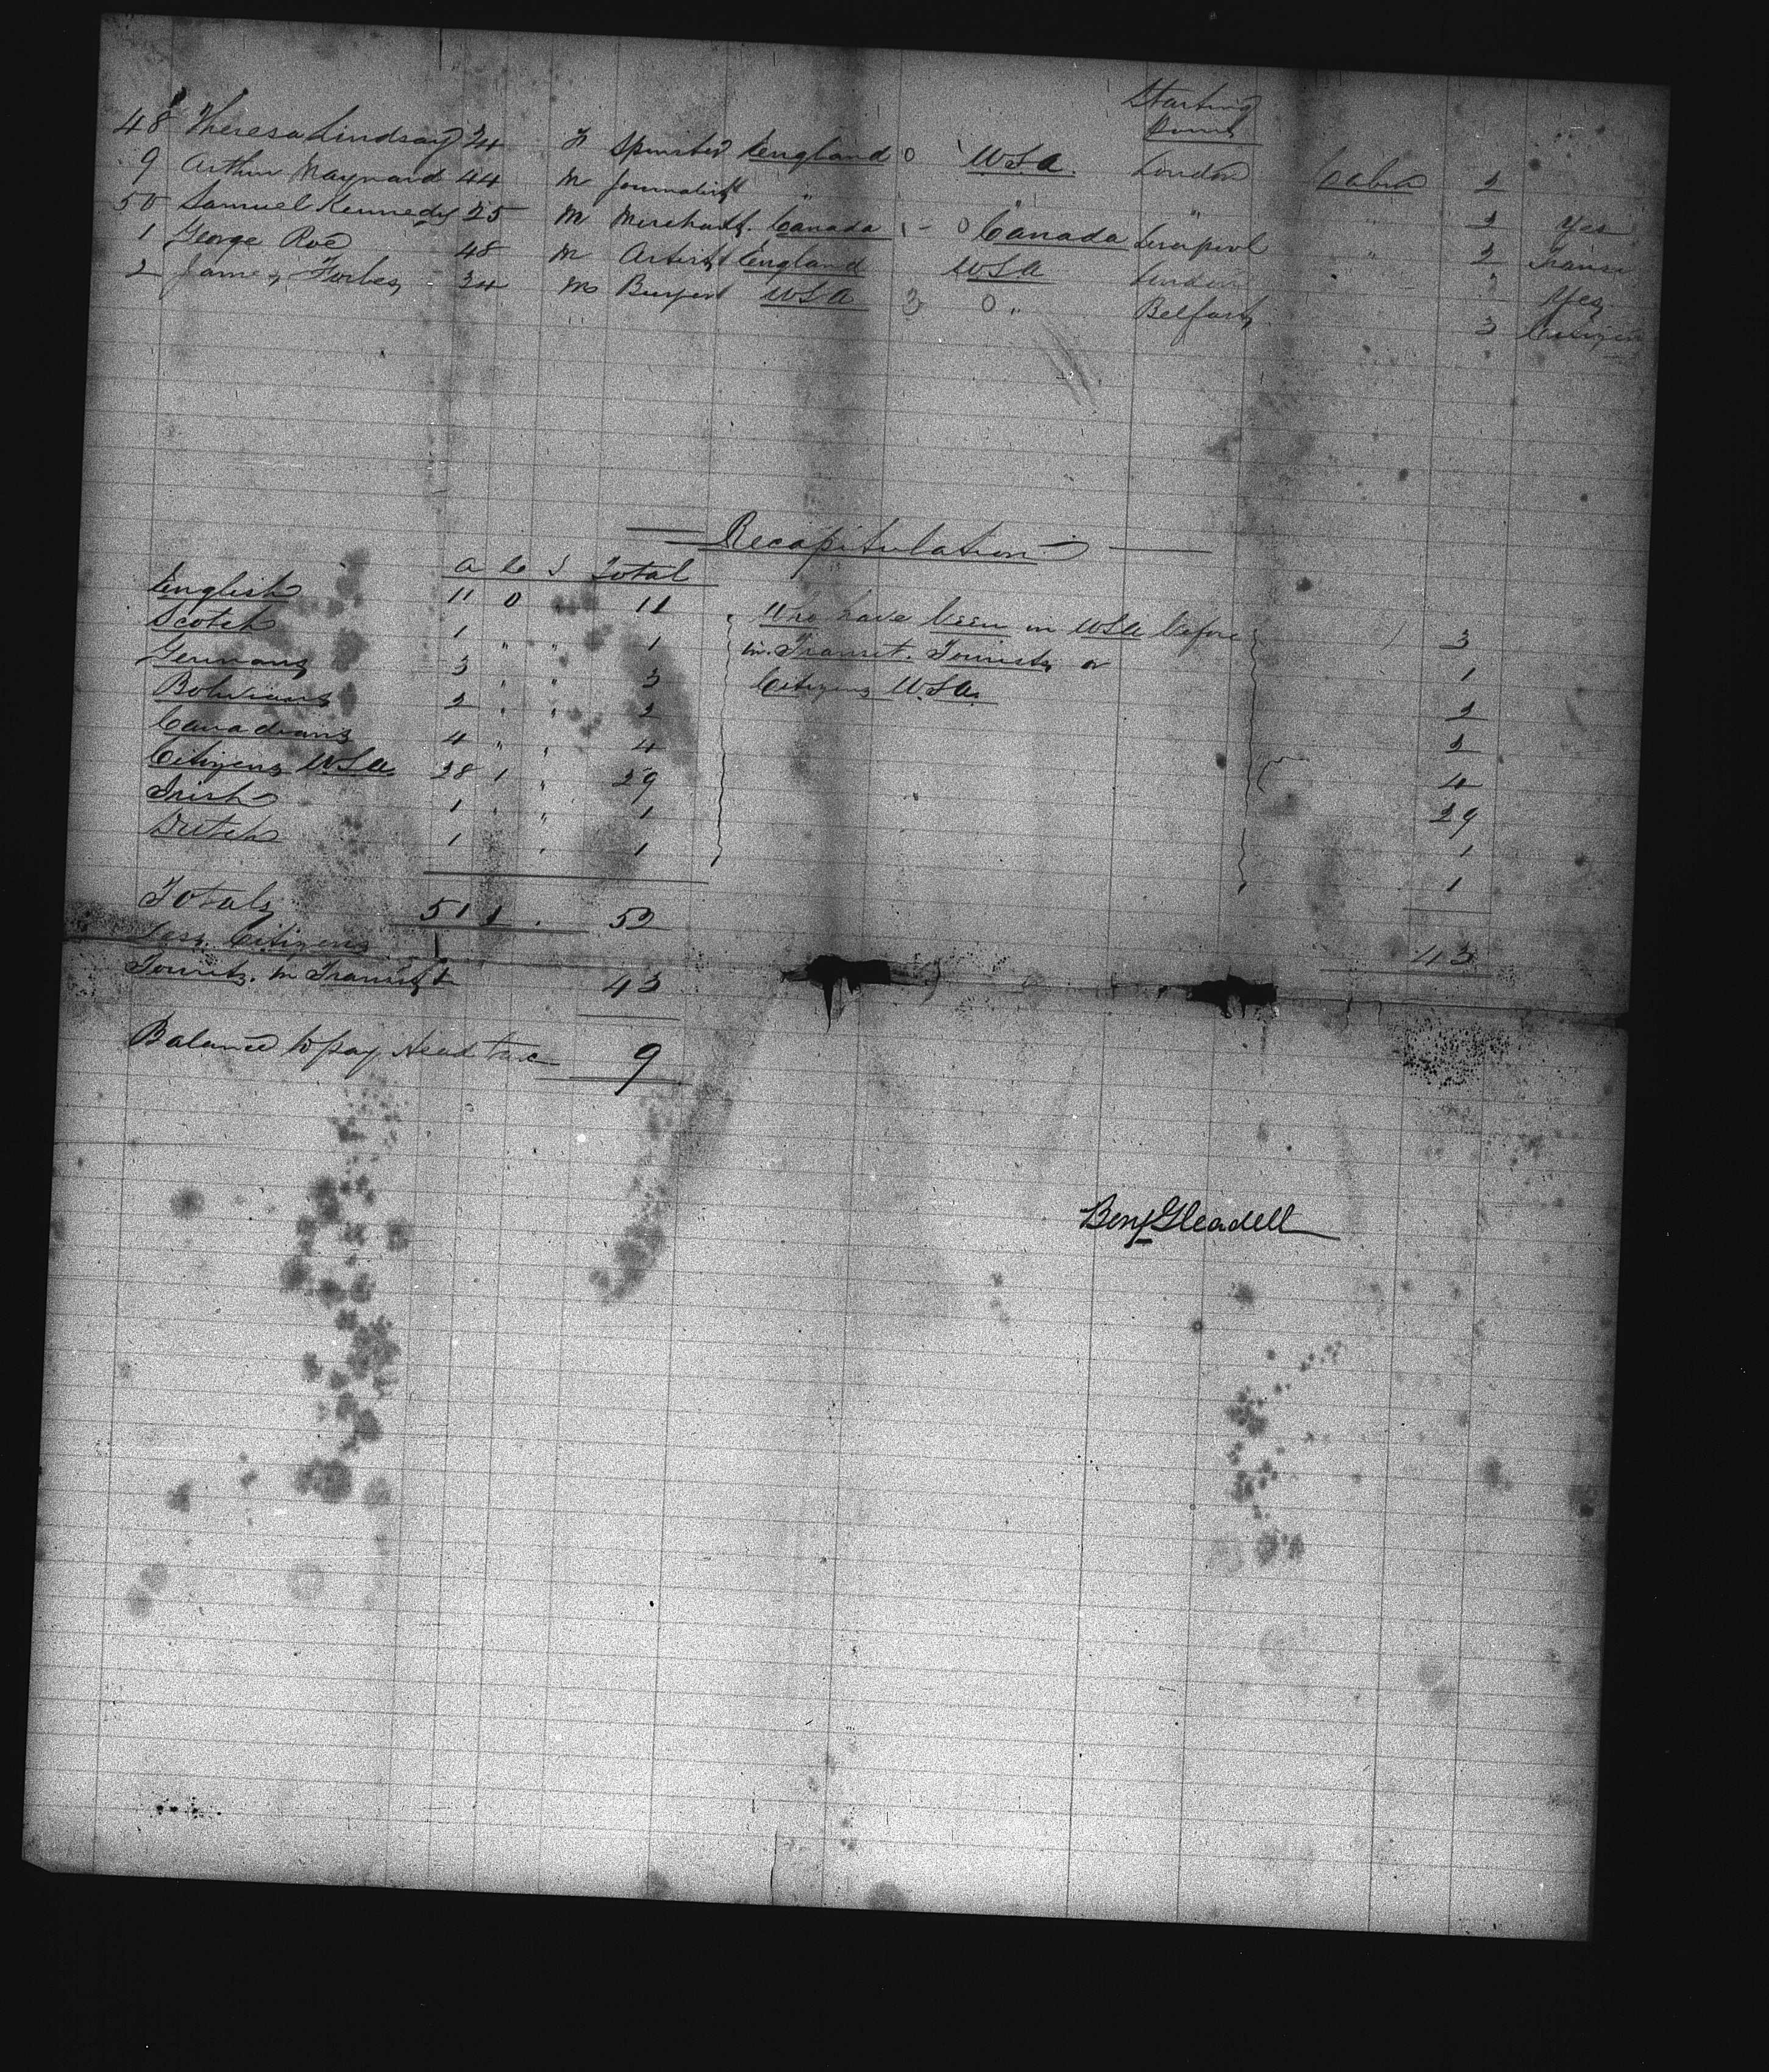 Starting
Point
48 Theresa Lindsay 24 F Spinster England 0 U.S.A. London Cabin 2
9 Arthur Maynard 44 M Journalist " " " " 2 Yes
50 Samuel Kennedy 25 M Merchant Canada - 0 Canada Liverpool " 2 Transit
1 George Roe 48 M Artist England USA London " Yes
2 James Forbes 34 M Buyer USA 3 0 " Belfast 3 Citizen
Recapitulation
A C I Total
English 11 0 11 Who have been in USA before 3
Scotch 1 " " 1 in Transit. Tourists or 1
Germans 3 " " 3 Citizens U.S.A. 2
Bolivians 2 " " 2 2
Canadians 4 " " 4 4
Citizens U.S.A. 28 1 " 29 29
Irish 1 " " 1 1
Dutch 1 " 1 1
Totals 51 1 . 52 43
Less. Citizens
Tourists. in Transit 43
Balance to pay Head tax 9
Benj Gleadell